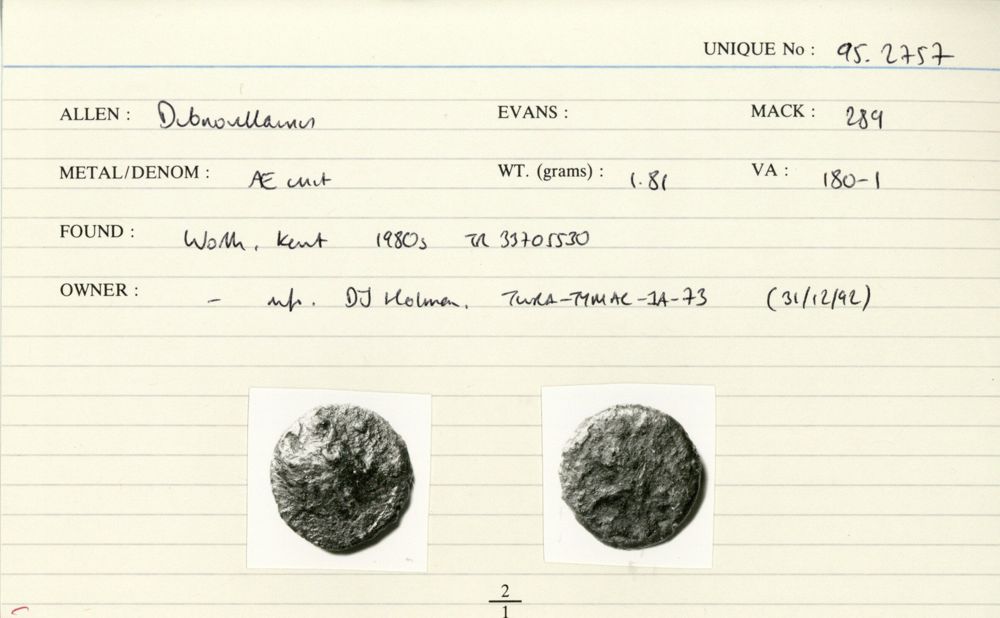 UNIQUE No : 95. 2757
ALLEN : Dubnovellaunus EVANS : MACK : 289
METAL/DENOM : Æ unit WT. (grams) : 1.81 VA : 180-1
FOUND : Worth, Kent 1980s TR 33705530
OWNER : - info. DJ Holman, TWRA-TYMAC-IA-73 (31/12/92)
2
1